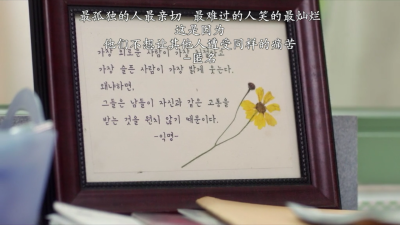 最孤独的人最亲切 最难过的人笑的最灿烂
这是因为
他们不想让其他人遭受同样的痛苦
-匿名
가장 외로운 사람이 가장
가장 슬픈 사람이 가장 밝게 웃는다.
왜냐하면,
그들은 남들이 자신과 같은 고통을
받는 것을 원치 않기 때문이다.
-익명-